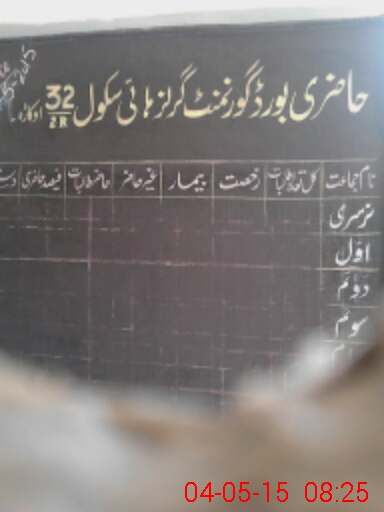 حاضری بورڈ گورنمنٹ گرلز ہائی سکول 32/2R اوکاڑہ
نام جماعت کل تعداد طالبات رخصت بیمار غیر حاضر حاضر طالبات فیصد حاضری
نرسری
اوّل
دوئم
سوئم
04-05-15 08:25